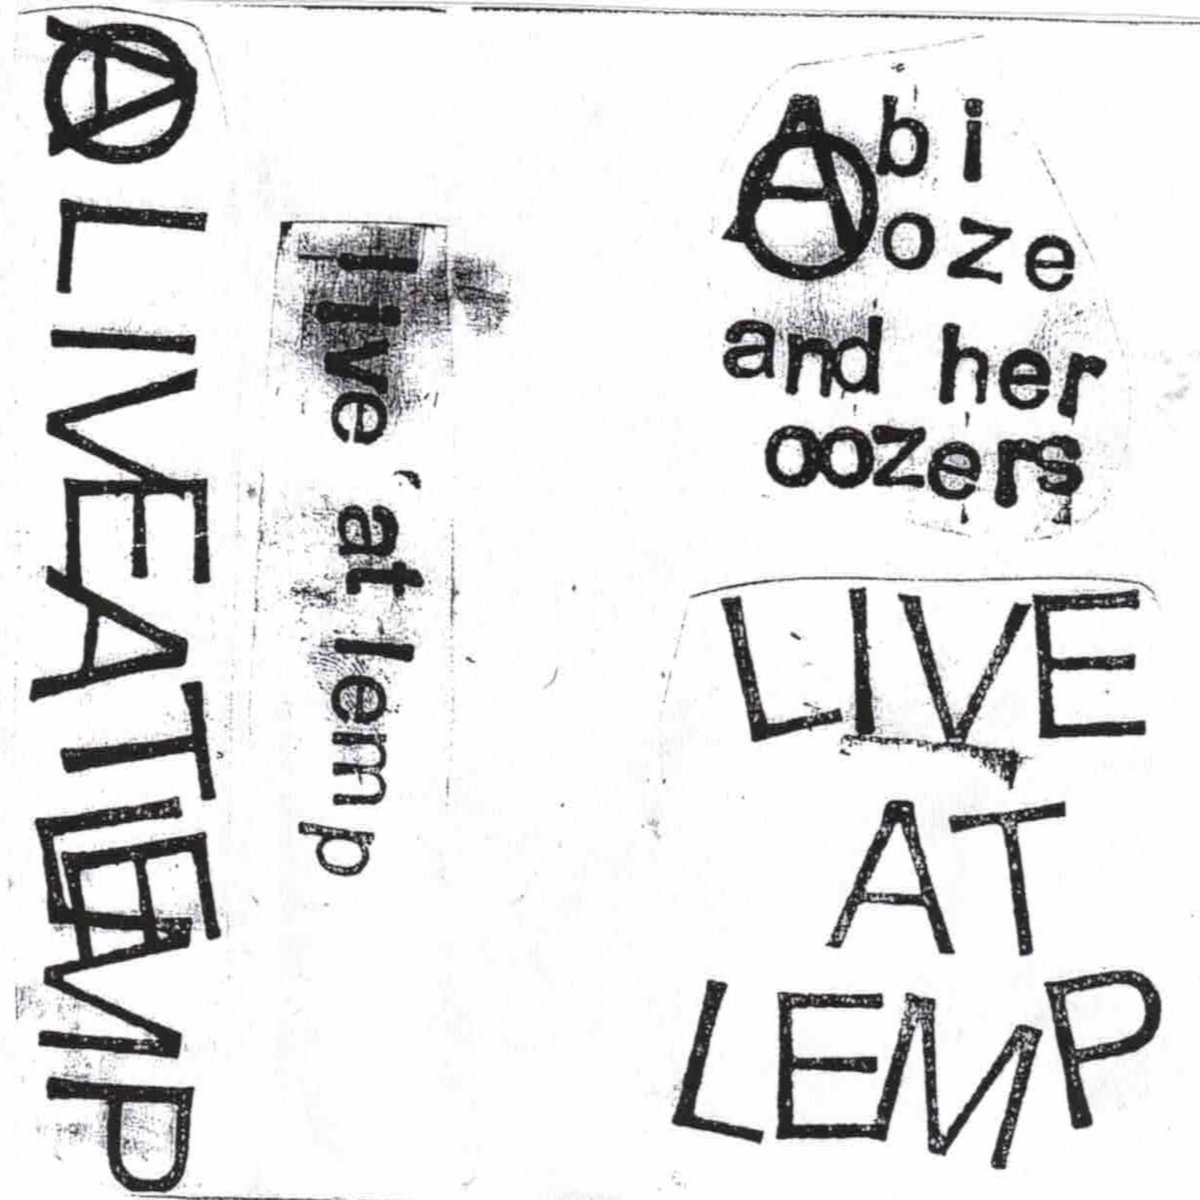 Ⓐ LIVE AT LEMP
live at lemp
Abi
oze
and her
oozers
LIVE
AT
LEMP